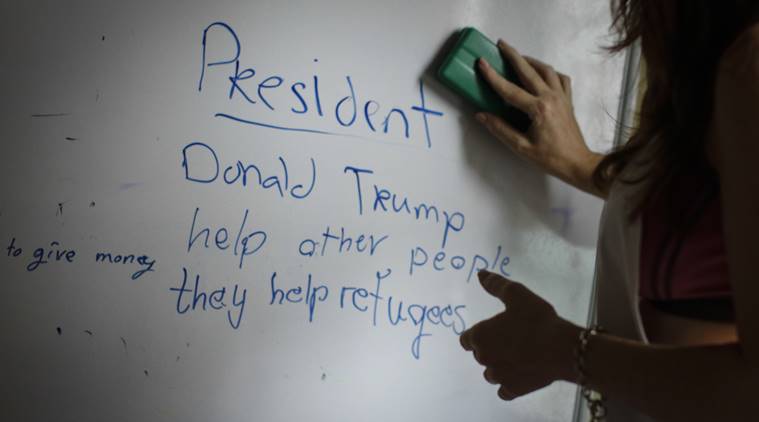 President
Donald Trump
help other people
to give money
they help refugees